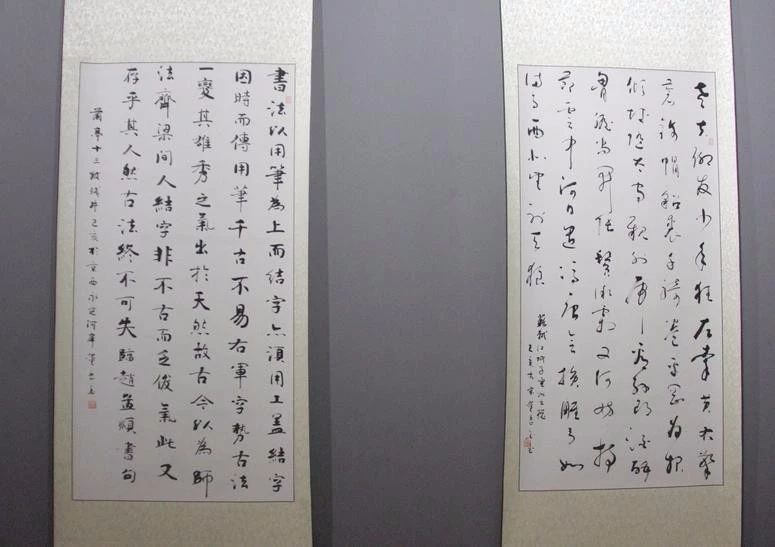 老夫聊發少年狂左牽黃右擎
蒼錦帽貂裘千騎卷平岡為報
傾城隨太守親射虎看孫郎酒酣
胸膽尚開張鬢微霜又何妨持
節雲中何日遣馮唐會挽雕弓如
滿月西北望射天狼
蘇軾江城子密州出獵
己亥
書法以用筆為上而結字亦須用工蓋結字
因時而傳用筆千古不易右軍字勢古法
一變其雄秀之氣出於天然故古今以為師
法齊梁間人結字非不古而乏俊氣此又
存乎其人然古法終不可失臨趙孟頫書句
蘭亭十三跋 己亥於京西永定河畔